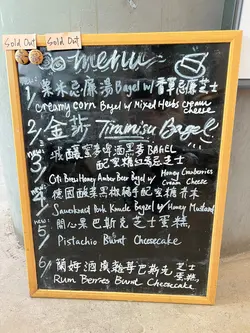 Sold Out
Sold Out
menu
new!
1/ 粟米忌廉湯Bagel w/ 香草忌廉芝士
creamy corn Bagel w/ Mixed Herbs cream cheese
2/ 金莎 Tiramisu Bagel
new!
3/
BAGEL
Citi Brew Honey Amber Beer Bagel w/ Honey Cranberries Cream Cheese
new!
4 德國酸菜黑椒豬手配蜜糖芥末
Sauerkraut Pork Knuckle Bagel w/ Honey Mustard
new!
5 開心果巴斯克芝士蛋糕
Pistachio Burnt Cheesecake
6/ 芝士蛋糕
Rum Berries Burnt Cheesecake